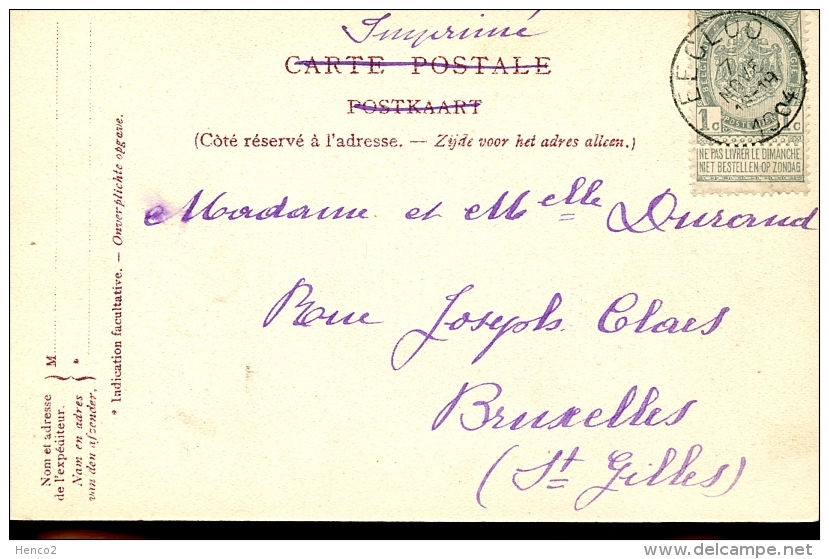 Imprimé
CARTE POSTALE
POSTKAART
(Côté réservé à l'adresse. — Zijde voor het adres alleen.)
EECLOO
7
NOV
1904
1c
NE PAS LIVRER LE DIMANCHE
NIET BESTELLEN OP ZONDAG
Madame et Melle Durand
Rue Joseph Claes
Bruxelles
(St Gilles)
* Indication facultative. — Onverplichte opgave.
M
*
Nom et adresse
de l'expéditeur.
Nam en adres
van den afzender.
Henco2
http://www.delcampe.net